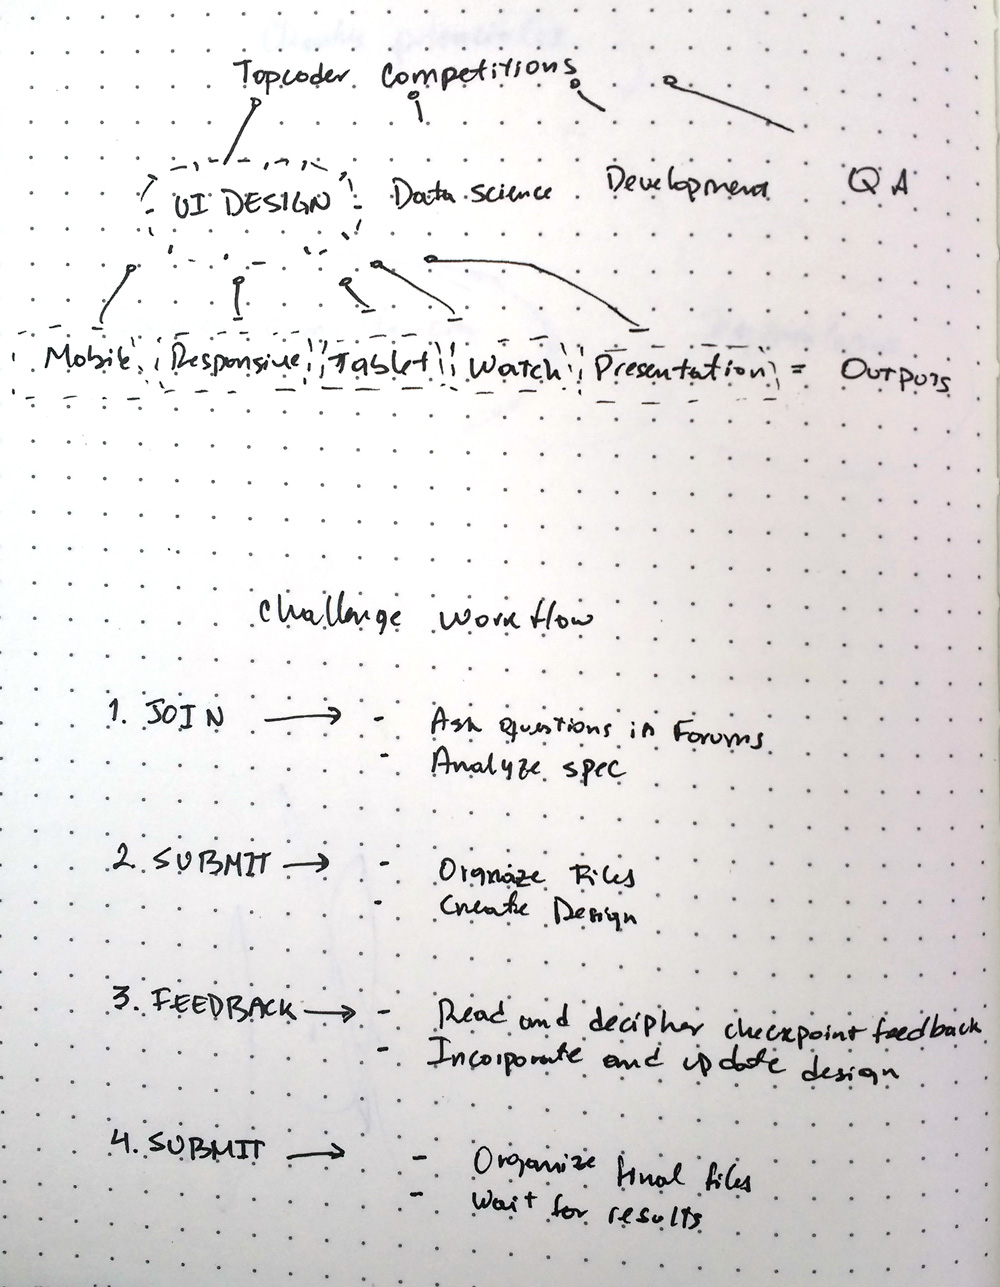 Topcoder Competitions
UI DESIGN Data science Development QA
Mobile Responsive Tablet Watch Presentation = Outputs
Challenge Workflow
1. JOIN → - Ask questions in Forums
- Analyze spec
2. SUBMIT → - Orgnaize Files
- Create Design
3. FEEDBACK → - Read and decipher checkpoint feedback
- Incorporate and update design
4. SUBMIT → - Organize final files
- Wait for results